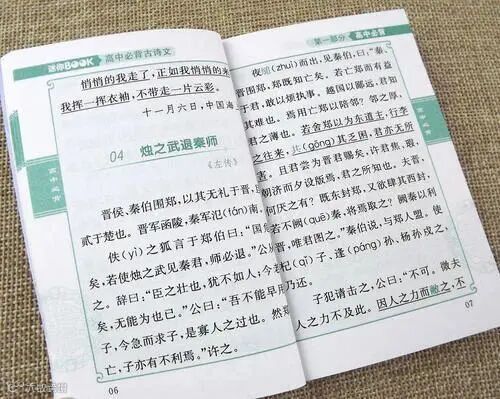 迷你BOOK 高中必背古诗文
悄悄的我走了，正如我悄悄的来
我挥一挥衣袖，不带走一片云彩。
十一月六日，中国海
04 烛之武退秦师
《左传》
晋侯、秦伯围郑，以其无礼于晋，
贰于楚也。晋军函陵，秦军氾(fán)南。
佚(yì)之狐言于郑伯曰：“国
矣，若使烛之武见秦君，师必退。”公
之。辞曰：“臣之壮也，犹不如人；今
矣，无能为也已。”公曰：“吾不能早用
子，今急而求子，是寡人之过也。然
亡，子亦有不利焉。”许之。
06
高中必背
第一部分 高中必背
夜缒(zhuì)而出，见秦伯，曰：“秦、
晋围郑，郑既知亡矣。若亡郑而有益
于君，敢以烦执事。越国以鄙远，君知
其难也。焉用亡郑以陪邻？邻之厚，
君之薄也。若舍郑以为东道主，行李
之往来，共(gōng)其乏困，君亦无所
害。且君尝为晋君赐矣，许君焦、瑕，
朝济而夕设版焉，君之所知也。夫晋，
何厌之有？既东封郑，又欲肆其西封，
若不阙(quē)秦，将焉取之？阙秦以利
晋，唯君图之。”秦伯说，与郑人盟。使
杞(qǐ)子、逄(páng)孙、杨孙戍之，
乃还。
子犯请击之，公曰：“不可。微夫
人之力不及此。因人之力而敝之，不
07
高中必背